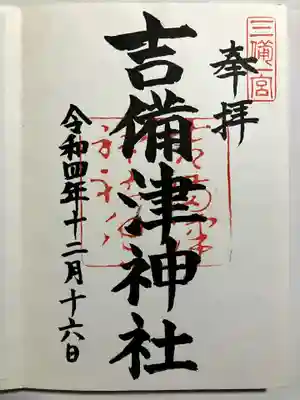 三備一宮
奉拝
吉備津神社
令和四年十二月十六日